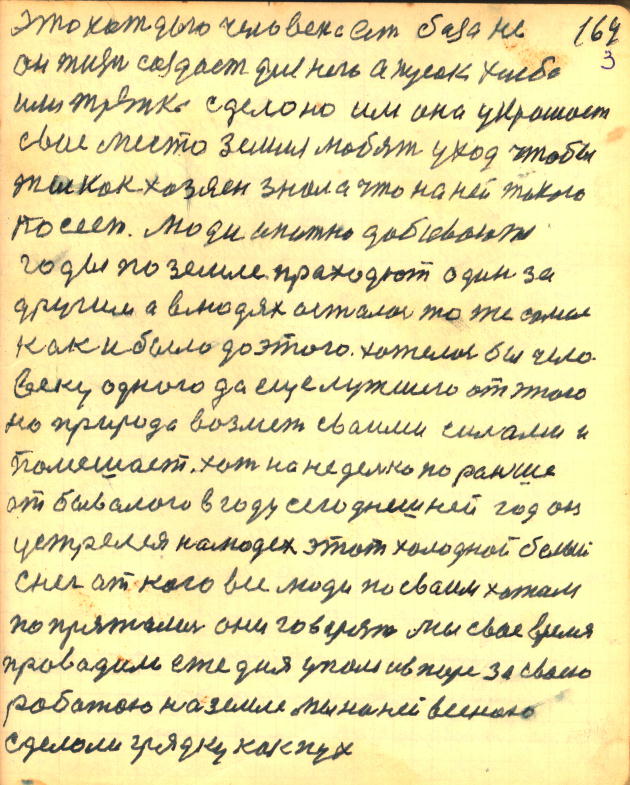 это каждого человека ест база не 164
он жизн создает для него а кусок хлеба 3
или тряпка сделоно им она украшает
свое место земля любят уход чтобы
жил как хозяен знала что на ней такого
посеет. люди опытно добываются
годы по земле праходют один за
другим а в людях осталос то же самое
как и было до этого. хотелос бы чело-
веку одного да еще лутшего от этого
но природа возмет сваими силами и
помешает. хот на неделко поранше
от бывалого в году сегоднешней год он
устрелея на людех этот холодной белый
снег от кого все люди по сваим хатам
попрятались они говорят мы свое время
правадили ежедня упали в паре за своею
работаю на земле мы на ней весною
сделоли грядку как пух